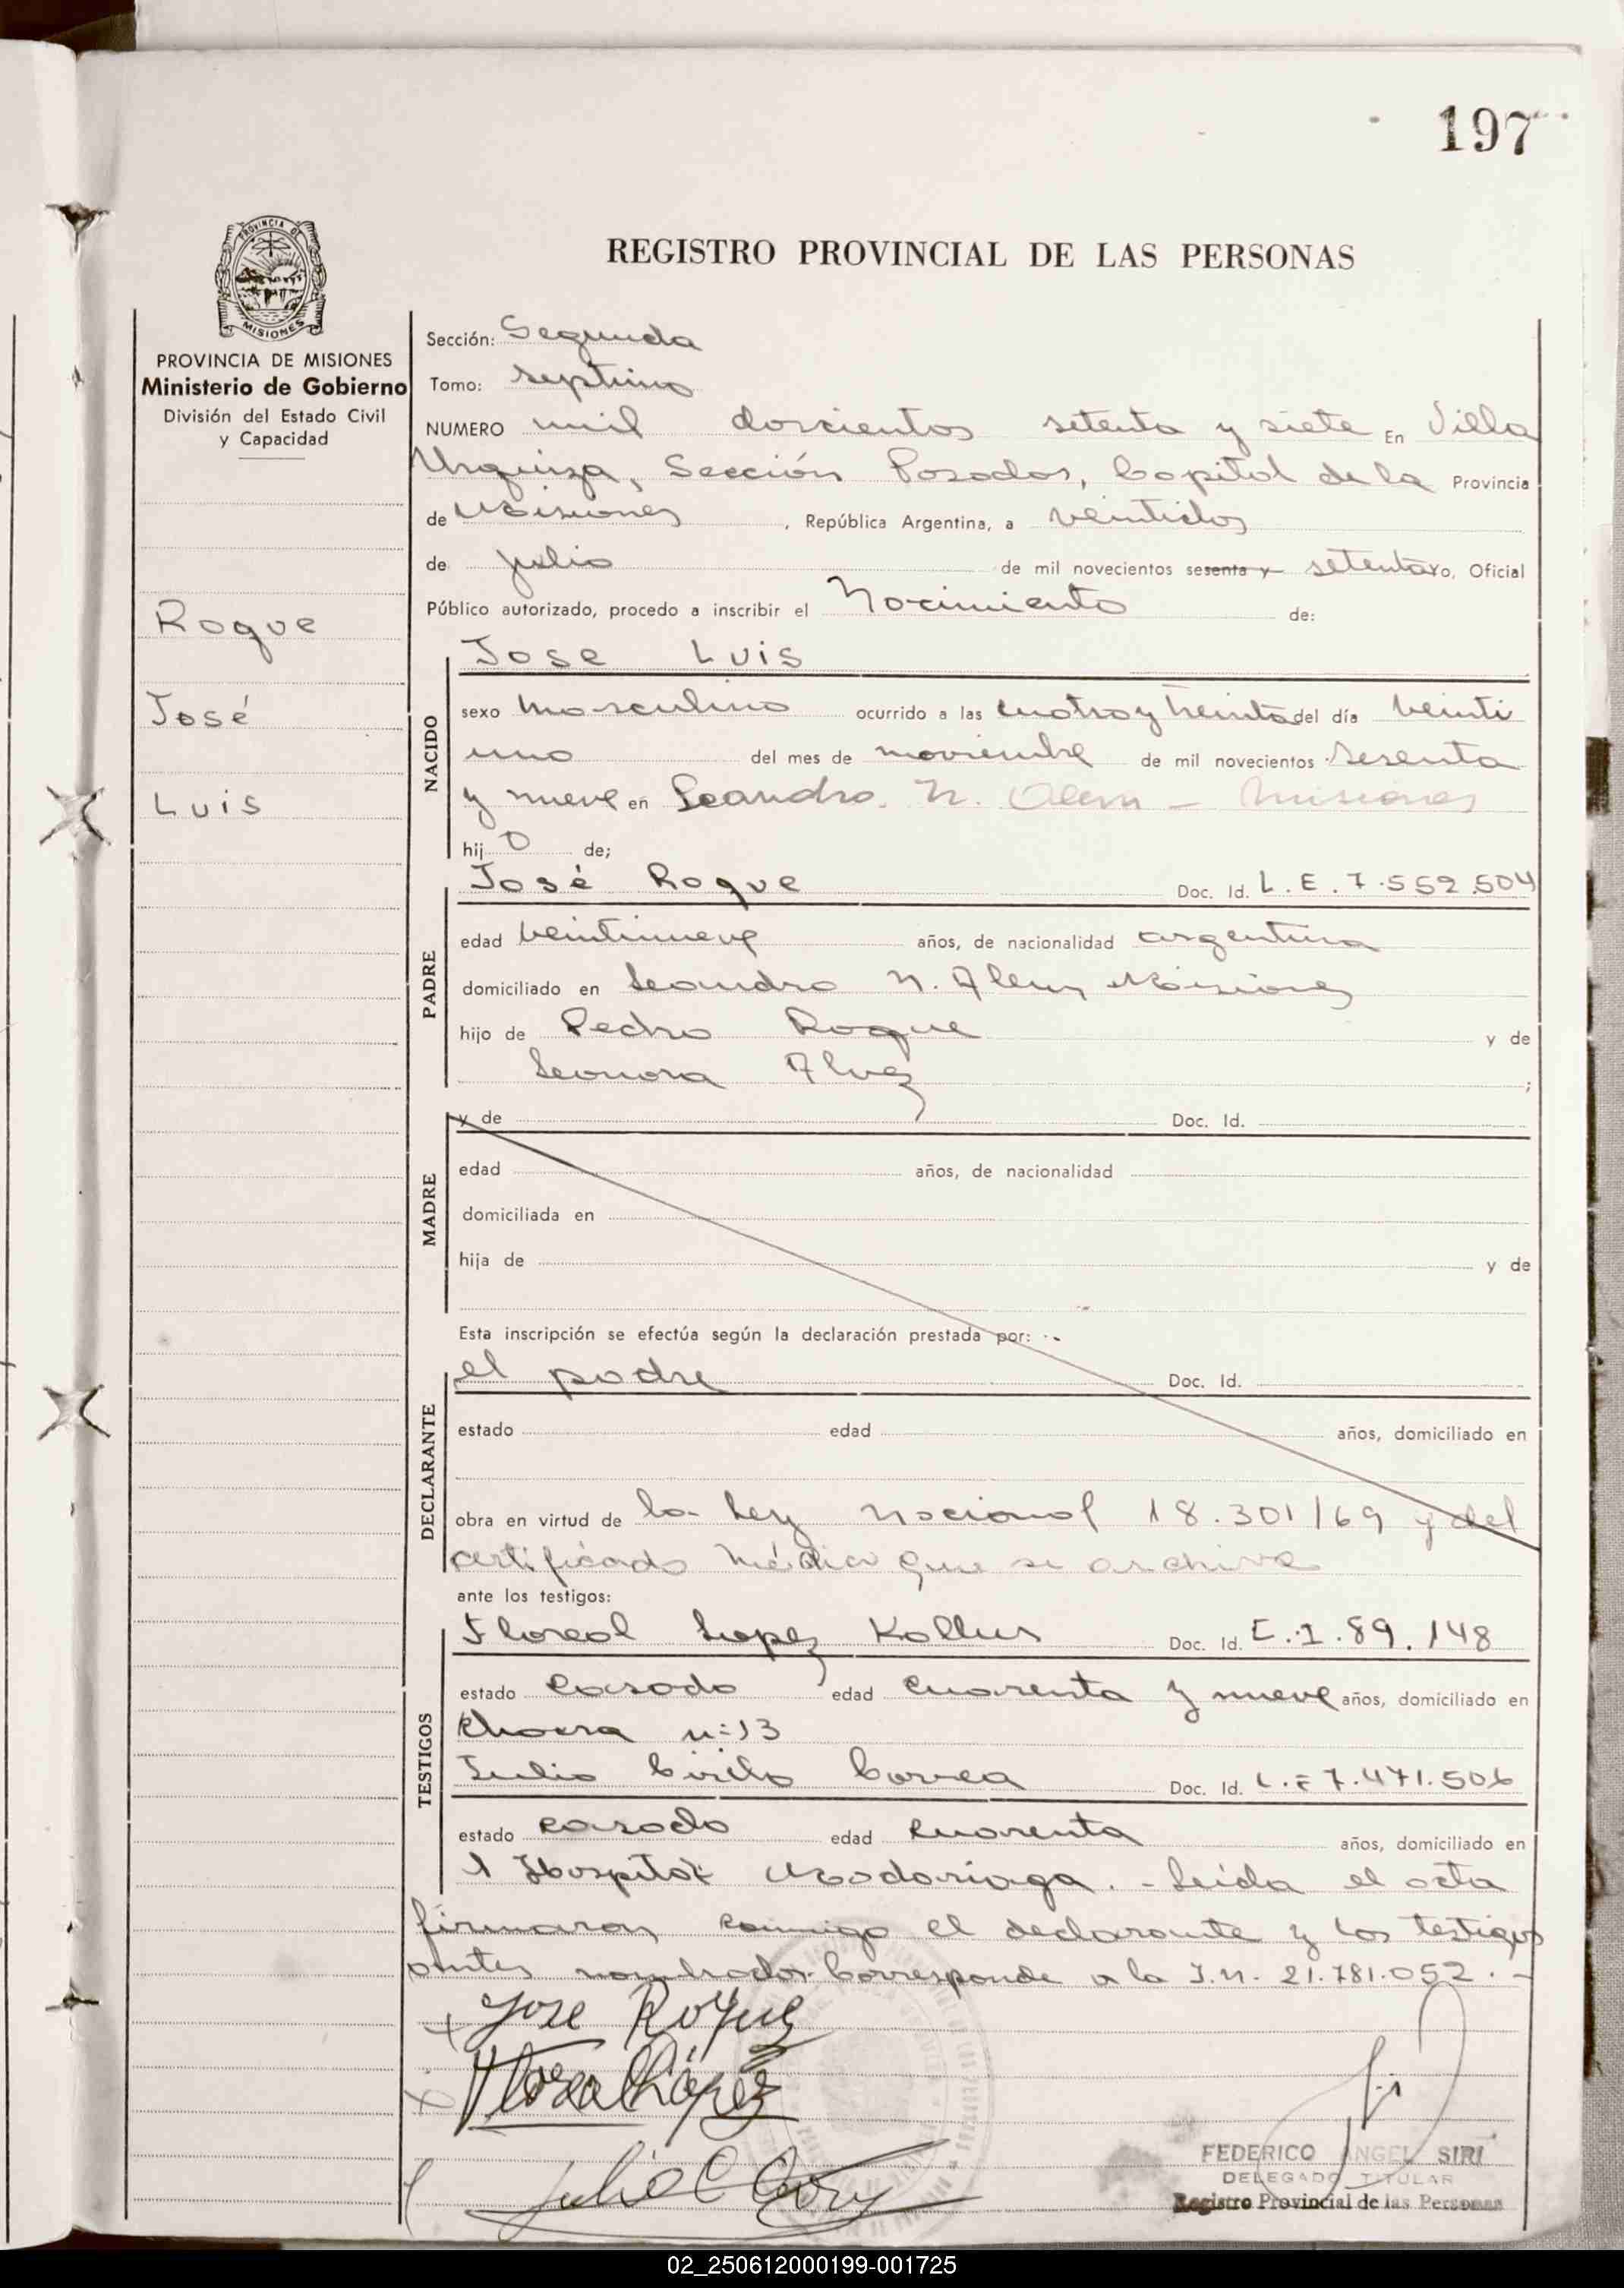 197
PROVINCIA DE
MISIONES
REGISTRO PROVINCIAL DE LAS PERSONAS
PROVINCIA DE MISIONES
Ministerio de Gobierno
División del Estado Civil
y Capacidad
Roque
José
Luis
Sección: Segunda
Tomo: septimo
NUMERO mil doscientos setenta y siete En Villa
Urquiza, Sección Posadas, Capital de la Provincia
de Misiones, República Argentina, a veintidos
de julio de mil novecientos sesenta y setenta yo, Oficial
Público autorizado, procedo a inscribir el Nacimiento de:
NACIDO
Jose Luis
sexo masculino ocurrido a las cuatro y treinta del día veinti
uno del mes de noviembre de mil novecientos sesenta
y nueve en Leandro N. Alem - Misiones
hij o de;
PADRE
José Roque Doc. Id. L.E. 7.552.504
edad veintinueve años, de nacionalidad argentina
domiciliado en Leandro N. Alem Misiones
hijo de Pedro Roque y de
Leonora Alvez ;
MADRE
y de Doc. Id.
edad años, de nacionalidad
domiciliada en
hija de y de
Esta inscripción se efectúa según la declaración prestada por:
DECLARANTE
el padre Doc. Id.
estado edad años, domiciliado en
obra en virtud de la Ley Nacional 18.301/69 y del
certificado médico que se archiva
ante los testigos:
TESTIGOS
Floreal Lopez Doc. Id. C.I. 89.148
estado casado edad cuarenta y nueve años, domiciliado en
n:13
Julio Cirilo Correa Doc. Id. L.E 7.471.506
estado casado edad cuarenta años, domiciliado en
Hospital Madariaga. - Leída el acta
firmaron conmigo el declarante y los testigos
antes nombrados. Corresponde a la I.N. 21.781.052. -
Jose Roque
Floreal López
FEDERICO ANGEL SIRI
DELEGADO TITULAR
Registro Provincial de las Personas
02_250612000199-001725